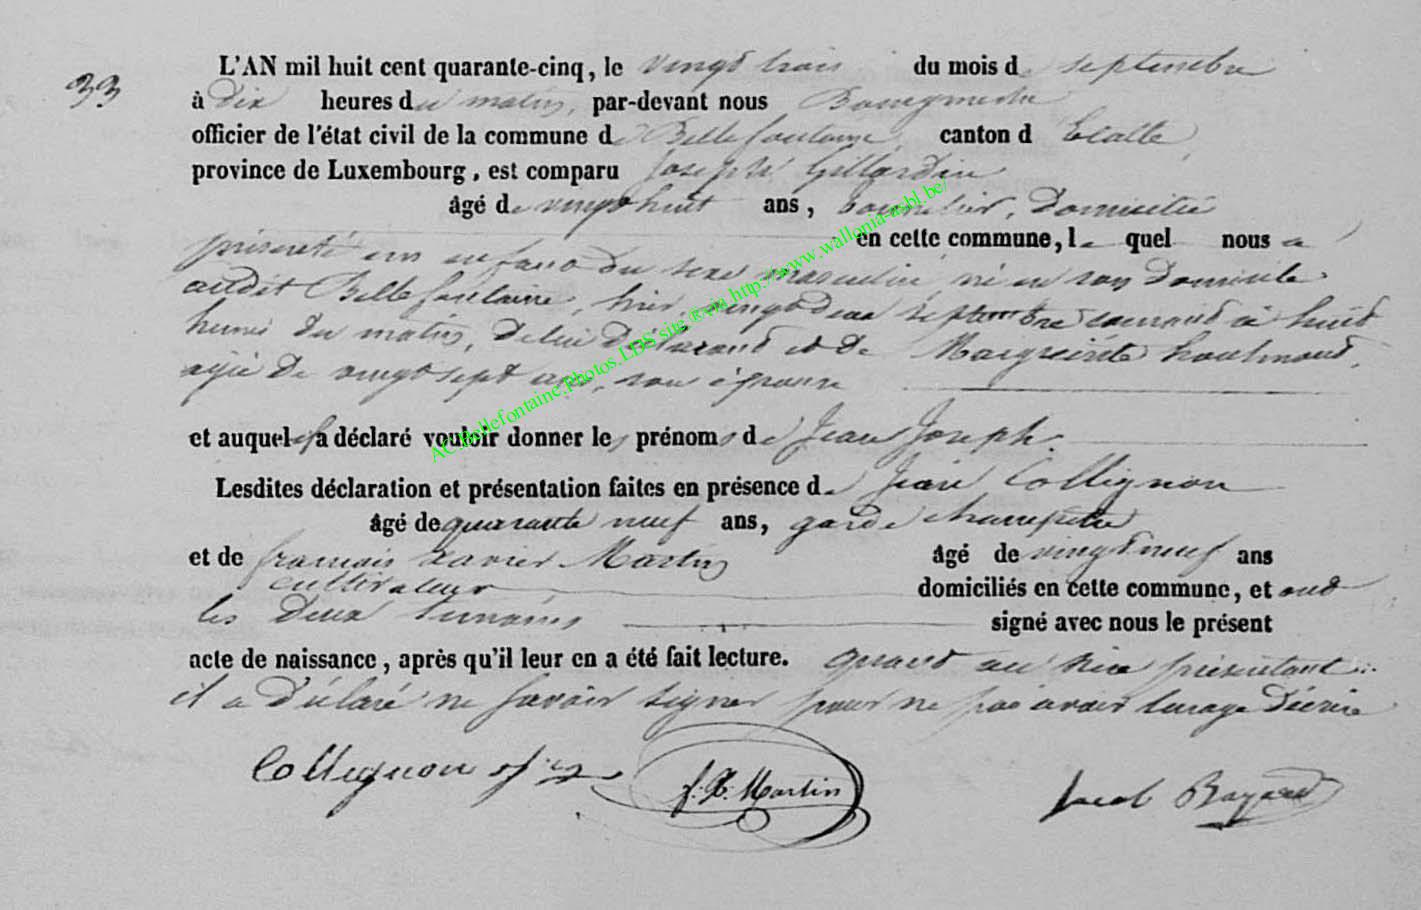 33
L'AN mil huit cent quarante-cinq, le vingt trois du mois de septembre
à Dix heures du matin, par-devant nous Bourgmestre
officier de l'état civil de la commune de Bellefontaine, canton d'Etalle,
province de Luxembourg, est comparu Joseph Gillardin
âgé de vingt huit ans, Domicilié
en cette commune, le quel nous a
présenté un enfant du sexe masculin, né en son Domicile
audit Bellefontaine, hier vingt deux septembre courant à huit
heures du matin, de lui Déclarant et de Margueritte
agée de vingt sept ans, son épouse
et auquel il a déclaré vouloir donner les prénoms de Jean Joseph.
Lesdites déclaration et présentation faites en présence de Jean Collignon
âgé de quarante neuf ans, garde champêtre
et de françois Xavier Martin âgé de vingt neuf ans
cultivateur domiciliés en cette commune, et ont
les Deux témoins signé avec nous le présent
acte de naissance, après qu'il leur en a été fait lecture. quant au père présentant
il a Déclaré ne savoir signer pour ne pas avoir l'usage D'écrire
Collignon f. X. Martin Jacob
AC.Bellefontaine.Photos.LDS site ® via http://www.wallonia-asbl.be/